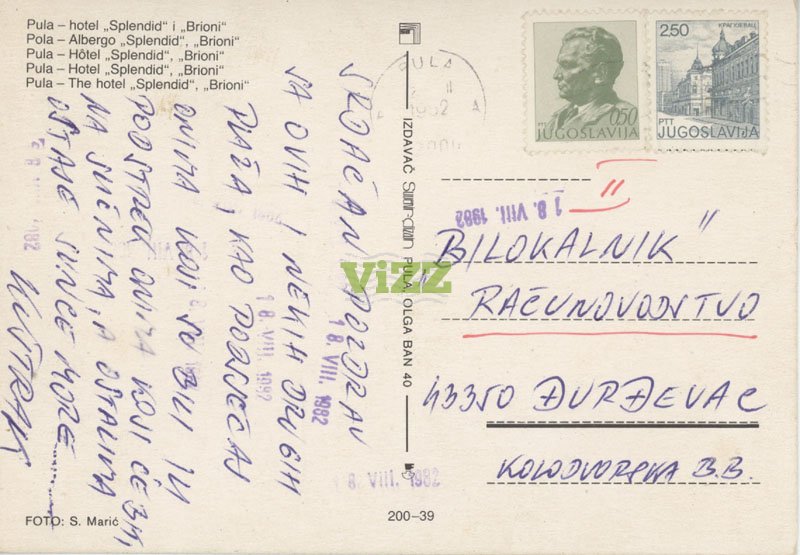 Pula – hotel „Splendid" i „Brioni"
Pola – Albergo „Splendid", „Brioni"
Pula – Hôtel „Splendid", „Brioni"
Pula – Hotel „Splendid", „Brioni"
Pula – The hotel „Splendid", „Brioni"
SRDAČAN POZDRAV
SA OVIH I NEKIH DRUGIH
PLAŽA, KAO PODSJEĆAJ
ONIMA KOJI SU BILI IH
PODSTREK ONIMA KOJI ĆE BITI
NA SLIČNIMA, A OSTALIMA
OSTAJE SUNCE MORE
FOTO: S. Marić
IZDAVAČ PULA, OLGA BAN 40
200–39
PULA
1982
0,50
PTT
JUGOSLAVIJA
2,50
КРАГУЈЕВАЦ
PTT
JUGOSLAVIJA
II
18. VIII. 1982
„BILOKALNIK"
RAČUNOVODSTVO
43350 ĐURĐEVAC
KOLODVORSKA B.B.
18. VIII. 1982
18. VIII. 1982
18. VIII. 1982
ViZZ